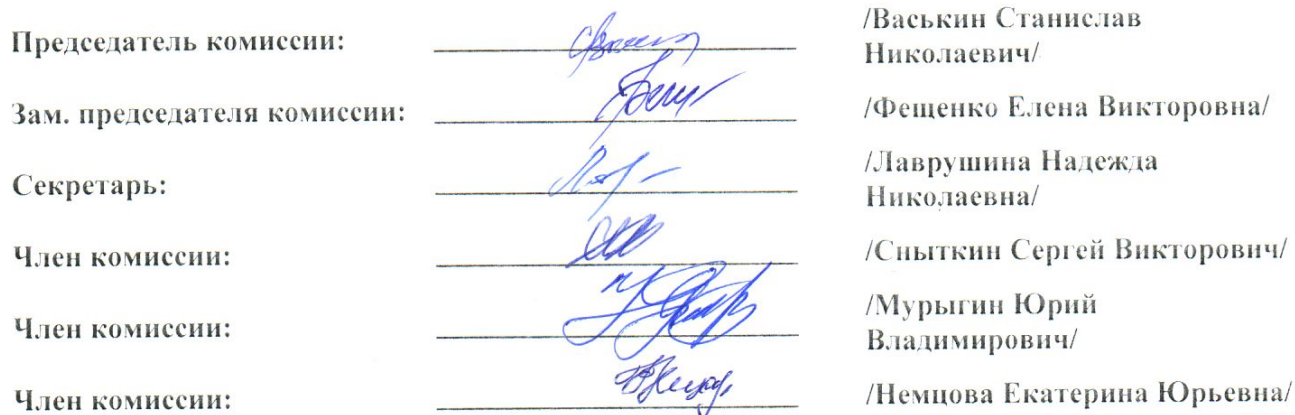 Председатель комиссии: /Васькин Станислав
Николаевич/
Зам. председателя комиссии: /Фещенко Елена Викторовна/
Секретарь: /Лаврушина Надежда
Николаевна/
Член комиссии: /Сныткин Сергей Викторович/
Член комиссии: /Мурыгин Юрий
Владимирович/
Член комиссии: /Немцова Екатерина Юрьевна/